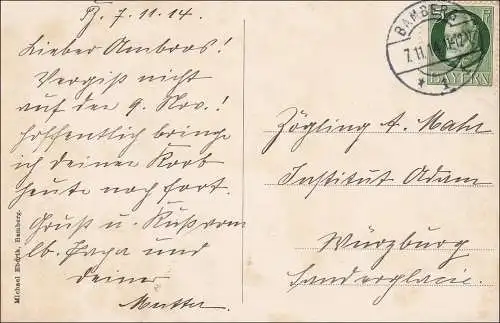 Bg. 7.11.14.
Lieber Ambros!
Vergiß nicht
auf den 9. Nov.!
Hoffentlich bringe
ich deinen Korb
heute noch fort.
Gruß u. Kuß vom
lb. Papa und
deiner
Mutter
Michael Eberth, Bamberg.
BAMBERG
7.11.14
1
BAYERN
Zögling A. Mahr
Institut Adam
Würzburg
Sanderglacis.